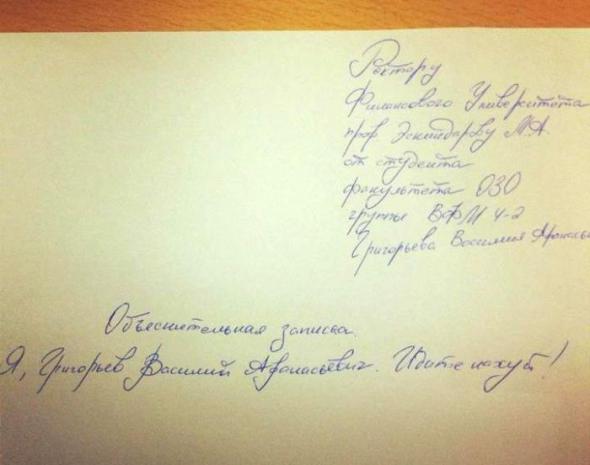 Ректору
Финансового Университета
проф. Эскиндарову М.А.
от студента
факультета ОЗО
группы ВФМ 4-2
Григорьева Василия Афанась
Объяснительная записка.
Я, Григорьев Василий Афанасьевич. Идите нахуй!